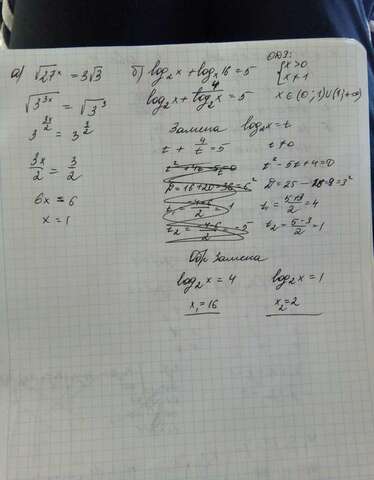 а) √27ˣ = 3√3
√3³ˣ = √3³
3^(3x/2) = 3^(3/2)
3x/2 = 3/2
6x = 6
x = 1
б) log₂x + logₓ16 = 5
log₂x + 4/log₂x = 5
ОДЗ:
{x>0
x≠1
x∈(0;1)∪(1;+∞)
Замена log₂x = t
t + 4/t = 5 t≠0
t² - 5t + 4 = 0
D = 25 - 16 = 9 = 3²
t₁ = (5+3)/2 = 4
t₂ = (5-3)/2 = 1
Обр замена
log₂x = 4 log₂x = 1
x₁ = 16 x₂ = 2